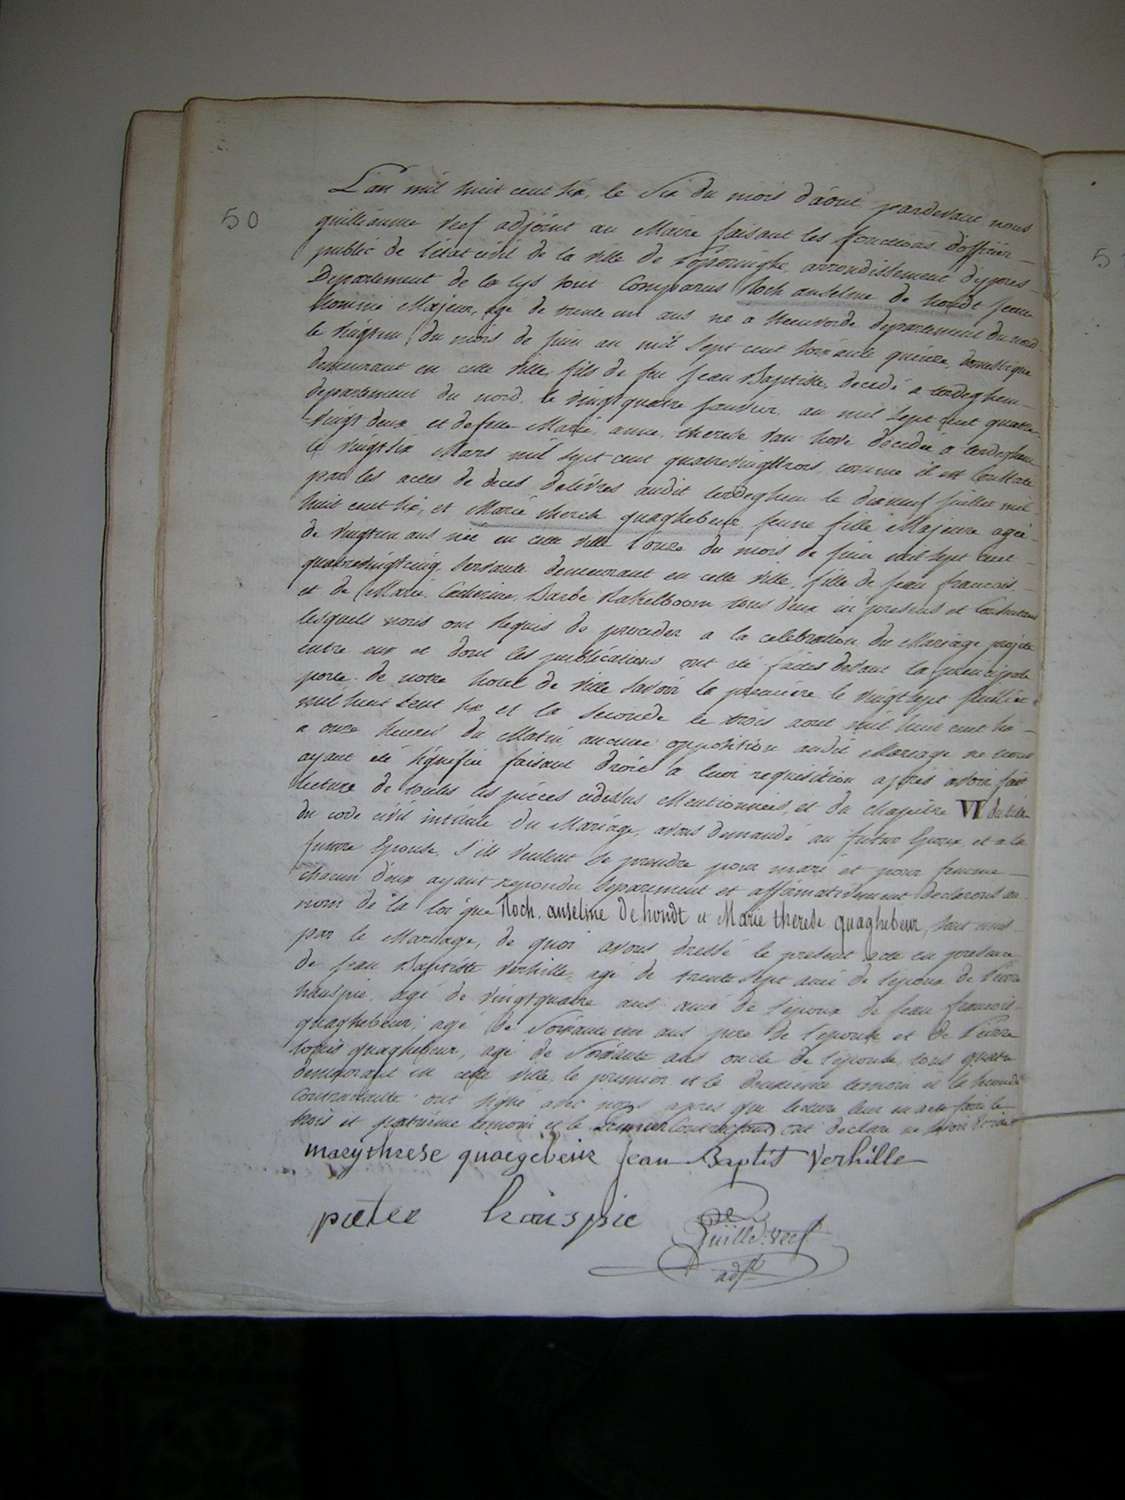 50
L'an mil huit cent six, le Six du mois d'août pardevant nous
guilliaume Verf adjoint au Maire faisant les fonctions d'officier
public de l'état civil de la ville de Poperinghe, arrondissement d'ypres
Departement de la Lys sont Comparus Roch anselme de hondt jeune
homme Majeur, agé de trente un ans né a Steenvorde departement du nord
le vingtun du mois de juin an mil sept cent soixante quinze, domestique
demeurant en cette ville, fils de feu Jean Baptiste, decedé a terdeghem
departement du nord, le vingt quatre janvier an mil sept cent quatre
vingt deux et de feue Marie anne therese van hove decedée a terdeghem
le vingt six Mars mil sept cent quatrevingttrois, comme il est Constaté
par les actes de deces delivrés audit terdeghem le dixneuf juillet mil
huit cent six, et Marie therese quaghebeur jeune fille Majeure agée
de vingtun ans née en cette ville l'onze du mois de juin mil sept cent
quatrevingtcinq, Servante demeurant en cette ville, fille de jean francois
et de Marie Catherine Barbe Rakelboom tous deux ici presens et Consentans
lesquels nous ont requis de proceder a la celebration du Mariage projetté
entre eux et dont les publications ont été faites devant la principale
porte de notre hotel de ville savoir la premiere le vingt sept juillet
mil huit cent six et la seconde le trois aout mil huit cent six
a onze heures du Matin aucune opposition audit Mariage ne nous
ayant été signifiée faisant droit a leur requisition apres avoir fait
lecture de toutes les pieces cidessus Mentionnées, et du chapitre VI du titre
du code civil intitulé du Mariage, avons demandé au futur Epoux et a la
future Epouse, S'ils veulent se prendre pour mari et pour femme
chacun d'eux ayant repondu Separement et affirmativement declarons au
nom de la loi que Roch anselme De hondt et Marie therese quaghebeur, sont unis
par le Mariage, de quoi avons dressé le present acte en presence
de jean Baptiste Verhille agé de trente sept ami de l'epoux de Pierre
houspie agé de vingt quatre ans ami de l'epoux de jean francois
quaghebeur, agé de Soixante un ans pere de l'epouse et de Pierre
Louis quaghebeur, agé de Soixante ans oncle de l'epouse tous quatre
demeurant en cette ville le premier et le deuxieme temoin et la seconde
Contractante ont signé avec nous apres que lecture leur en a été faite le
trois et quatrieme temoin et le premier Contractant ont declaré ne savoir
marythrese quaegebeur jean Baptist Verhille
pieter houspie
Guill. Verf
adjt